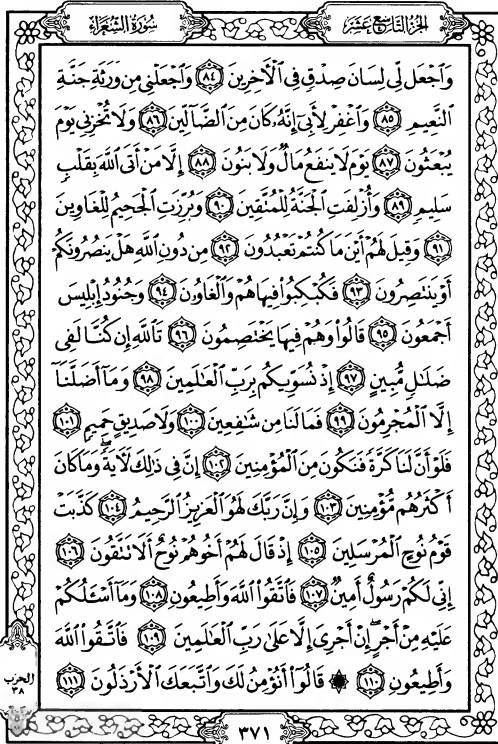 سُورَةُ الشُّعَرَاءِ
الجُزءُ التَّاسِعَ عَشَرَ
وَاجْعَل لِّى لِسَانَ صِدْقٍ فِى الْآخِرِينَ ٨٤ وَاجْعَلْنِى مِن وَرَثَةِ جَنَّةِ
النَّعِيمِ ٨٥ وَاغْفِرْ لِأَبِى إِنَّهُ كَانَ مِنَ الضَّالِّينَ ٨٦ وَلَا تُخْزِنِى يَوْمَ
يُبْعَثُونَ ٨٧ يَوْمَ لَا يَنفَعُ مَالٌ وَلَا بَنُونَ ٨٨ إِلَّا مَنْ أَتَى اللَّهَ بِقَلْبٍ
سَلِيمٍ ٨٩ وَأُزْلِفَتِ الْجَنَّةُ لِلْمُتَّقِينَ ٩٠ وَبُرِّزَتِ الْجَحِيمُ لِلْغَاوِينَ
٩١ وَقِيلَ لَهُمْ أَيْنَ مَا كُنتُمْ تَعْبُدُونَ ٩٢ مِن دُونِ اللَّهِ هَلْ يَنصُرُونَكُمْ
أَوْ يَنتَصِرُونَ ٩٣ فَكُبْكِبُوا فِيهَا هُمْ وَالْغَاوُونَ ٩٤ وَجُنُودُ إِبْلِيسَ
أَجْمَعُونَ ٩٥ قَالُوا وَهُمْ فِيهَا يَخْتَصِمُونَ ٩٦ تَاللَّهِ إِن كُنَّا لَفِى
ضَلَالٍ مُّبِينٍ ٩٧ إِذْ نُسَوِّيكُم بِرَبِّ الْعَالَمِينَ ٩٨ وَمَا أَضَلَّنَا
إِلَّا الْمُجْرِمُونَ ٩٩ فَمَا لَنَا مِن شَافِعِينَ ١٠٠ وَلَا صَدِيقٍ حَمِيمٍ ١٠١
فَلَوْ أَنَّ لَنَا كَرَّةً فَنَكُونَ مِنَ الْمُؤْمِنِينَ ١٠٢ إِنَّ فِى ذَلِكَ لَآيَةً وَمَا كَانَ
أَكْثَرُهُم مُّؤْمِنِينَ ١٠٣ وَإِنَّ رَبَّكَ لَهُوَ الْعَزِيزُ الرَّحِيمُ ١٠٤ كَذَّبَتْ
قَوْمُ نُوحٍ الْمُرْسَلِينَ ١٠٥ إِذْ قَالَ لَهُمْ أَخُوهُمْ نُوحٌ أَلَا تَتَّقُونَ ١٠٦
إِنِّى لَكُمْ رَسُولٌ أَمِينٌ ١٠٧ فَاتَّقُوا اللَّهَ وَأَطِيعُونِ ١٠٨ وَمَا أَسْأَلُكُمْ
عَلَيْهِ مِنْ أَجْرٍ إِنْ أَجْرِىَ إِلَّا عَلَى رَبِّ الْعَالَمِينَ ١٠٩ فَاتَّقُوا اللَّهَ
وَأَطِيعُونِ ١١٠ ۞ قَالُوا أَنُؤْمِنُ لَكَ وَاتَّبَعَكَ الْأَرْذَلُونَ ١١١
الحزب
٣٨
٣٧١